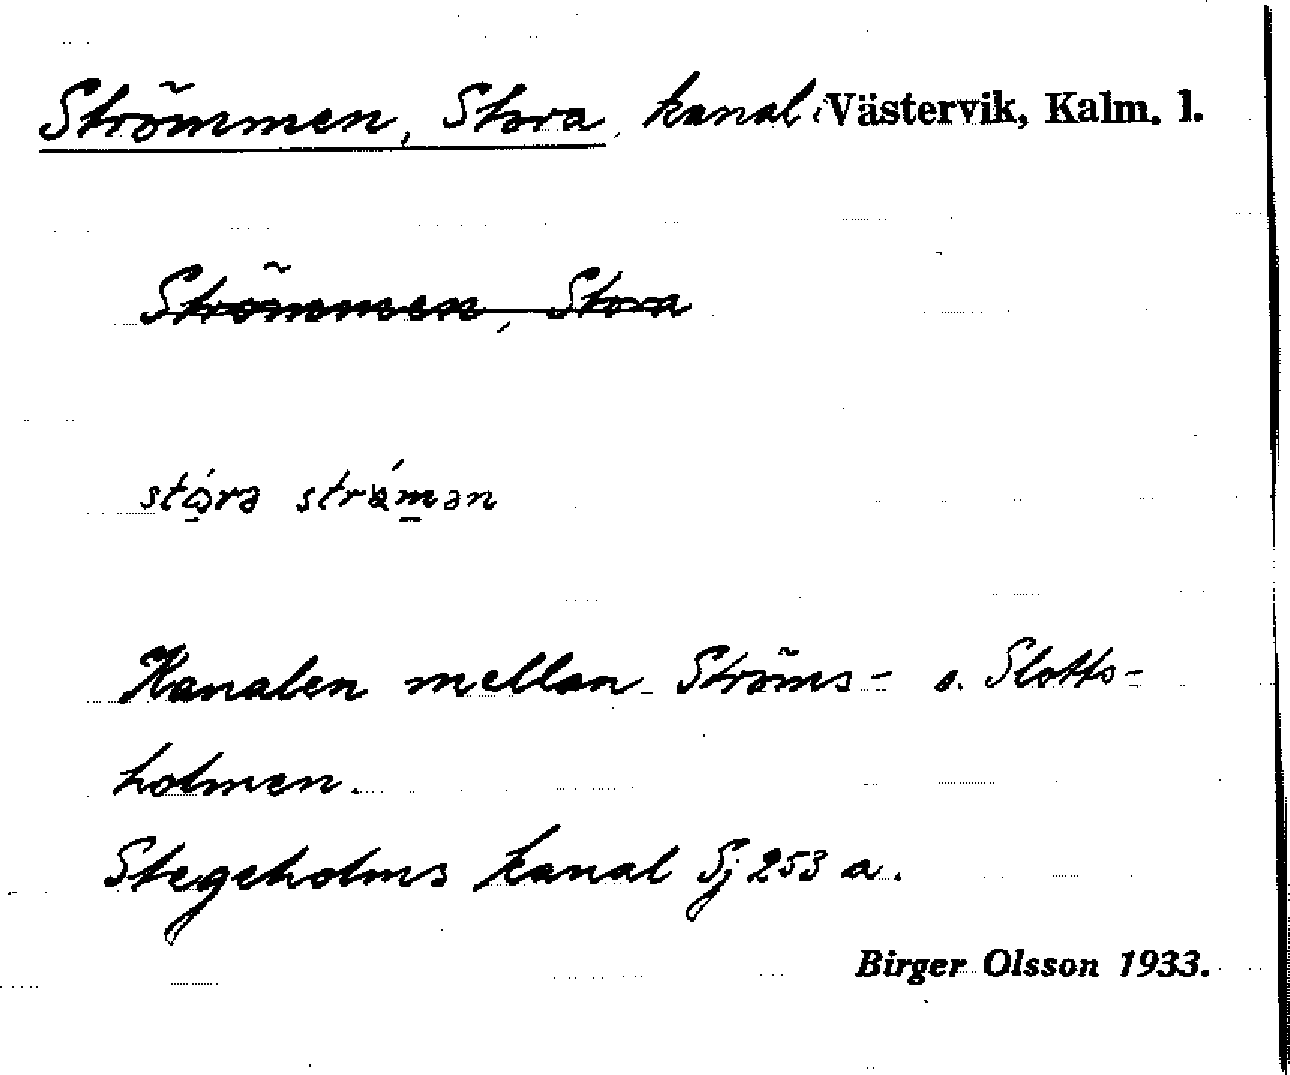 Strömmen, Stora, kanal Västervik, Kalm. l.
Strömmen, Stora
Kanalen mellan Ströms- o. Slotts-
holmen.
Stegeholms kanal Sj 253 a.
Birger Olsson 1933.